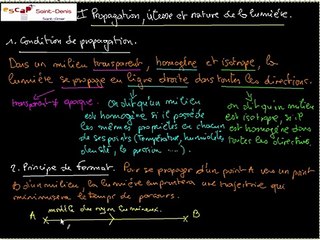 escap Saint-Denis
I Propagation, vitesse et nature de la lumière.
1. Condition de propagation.
Dans un milieu transparent, homogène et isotope, la
lumière se propage en ligne droite dans toutes les directions.
transparent ≠ opaque.
On dit qu'un milieu
est homogène si il possède
les mêmes propriétés en chacun
de ses points (Température, humidité,
densité, la pression .....).
on dit qu'un milieu
est isotope, si il
est homogène dans
toutes les directions.
2. Principe de format. Pour se propager d'un point A vers un point
B d'un milieu, la lumière empruntera une trajectoire qui
minimisera le temps de parcours.
modèle du rayon lumineux.
A B